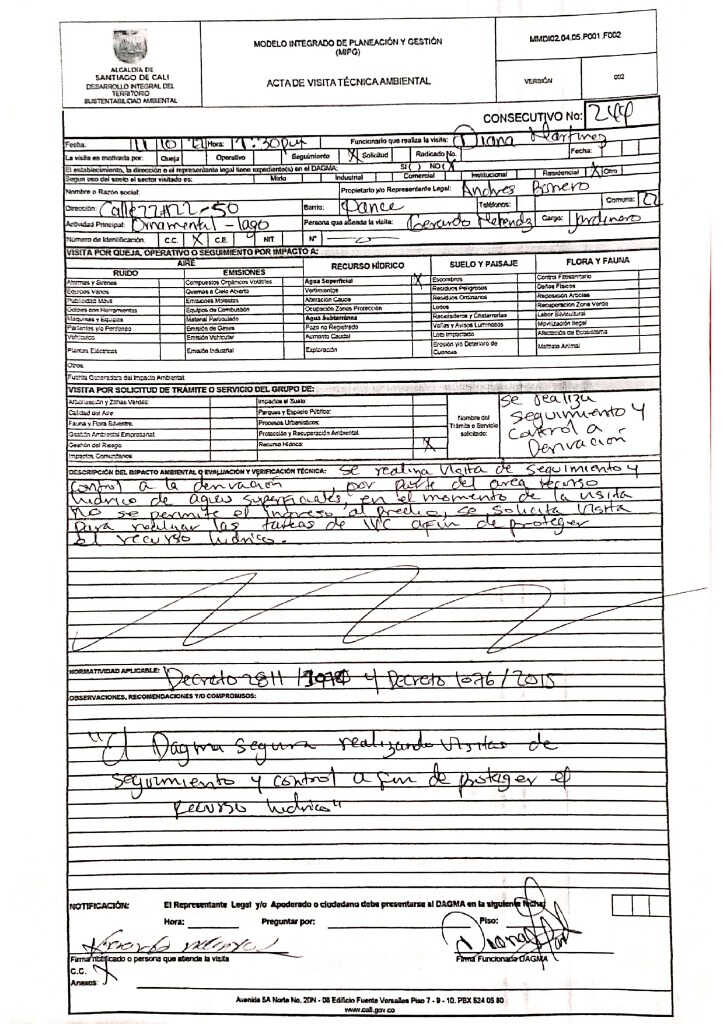 ALCALDÍA DE
SANTIAGO DE CALI
DESARROLLO INTEGRAL DEL
TERRITORIO
SUSTENTABILIDAD AMBIENTAL
MODELO INTEGRADO DE PLANEACIÓN Y GESTIÓN
(MIPG)
ACTA DE VISITA TÉCNICA AMBIENTAL
MMDI02.04.05.P001.F002
VERSIÓN 002
CONSECUTIVO No: 244
Fecha: 11 10 21 Hora: 1:30pm Funcionario que realiza la visita: Diana Martinez
La visita es motivada por: Queja Operativo Seguimiento X Solicitud Radicado No. Fecha:
El establecimiento, la dirección o el representante legal tiene expediente(s) en el DAGMA: SI ( ) NO (X)
Segun uso del suelo el sector visitado es: Mixto Industrial Comercial Institucional Residencial X Otro
Nombre o Razón social: Propietario y/o Representante Legal: Andres Borrero
Dirección: Calle 22 #122-50 Barrio: Pance Teléfonos: Comuna: 22
Actividad Principal: Ornamental - lago Persona que atiende la visita: Gerardo Cargo: Jardinero
Número de Identificación. C.C. X C.E. NIT N°
VISITA POR QUEJA, OPERATIVO O SEGUIMIENTO POR IMPACTO A:
AIRE RECURSO HÍDRICO SUELO Y PAISAJE FLORA Y FAUNA
RUIDO EMISIONES
Alarmas y Sirenas Compuestos Orgánicos Volátiles Agua Superficial X Escombros Control Fitosanitario
Equipos Varios Quemas a Cielo Abierto Vertimientos Residuos Peligrosos Daños Físicos
Publicidad Móvil Emisiones Molestas Alteración Cauce Residuos Ordinarios Reposición Arboles
Golpes con Herramientas Equipos de Combustión Ocupación Zonas Protección Lodos Recuperación Zona Verde
Maquinas y Equipos Material Particulado Agua Subterránea Recicladoras y Chatarrerías Labor Silvicultural
Parlantes y/o Perifoneo Emisión de Gases Pozo no Registrado Vallas y Avisos Luminosos Movilización Ilegal
Vehículos Emisión Vehicular Aumento Caudal Lote Impactado Afectación de Ecosistema
Plantas Eléctricas Emisión Industrial Exploración Erosión y/o Deterioro de Cuencas Maltrato Animal
Otros
Fuente Generadora del Impacto Ambiental.
VISITA POR SOLICITUD DE TRÁMITE O SERVICIO DEL GRUPO DE:
Arborización y Zonas Verdes: Impactos al Suelo
Calidad del Aire Parques y Espacio Público:
Fauna y Flora Silvestre. Procesos Urbanísticos:
Gestión Ambiental Empresarial: Protección y Recuperación Ambiental.
Gestión del Riesgo: Recurso Hídrico: X
Impactos Comunitarios
Nombre del
Trámite o Servicio
solicitado:
Se realiza
seguimiento y
control a
Derivación
DESCRIPCIÓN DEL IMPACTO AMBIENTAL O EVALUACIÓN Y VERIFICACIÓN TÉCNICA: Se realiza visita de seguimiento y
control a la derivación , por parte del area recurso
hidrico de aguas superficiales, en el momento de la visita
No se permite el ingreso al predio, se solicita visita
para realizar las tareas de IVC a fin de proteger
el recurso hidrico.
NORMATIVIDAD APLICABLE: Decreto 2811 /1974 y Decreto 1076/2015
OBSERVACIONES, RECOMENDACIONES Y/O COMPROMISOS:
"El Dagma seguira realizando visitas de
seguimiento y control a fin de proteger el
Recurso hidrico"
NOTIFICACIÓN: El Representante Legal y/o Apoderado o ciudadano debe presentarse al DAGMA en la siguiente fecha:
Hora: Preguntar por: Piso:
Firma notificado o persona que atiende la visita Firma Funcionada DAGMA
C.C. X
Anexos:
Avenida 5A Norte No. 20N - 08 Edificio Fuente Versalles Piso 7 - 9 - 10. PBX 524 05 80
www.cali.gov.co